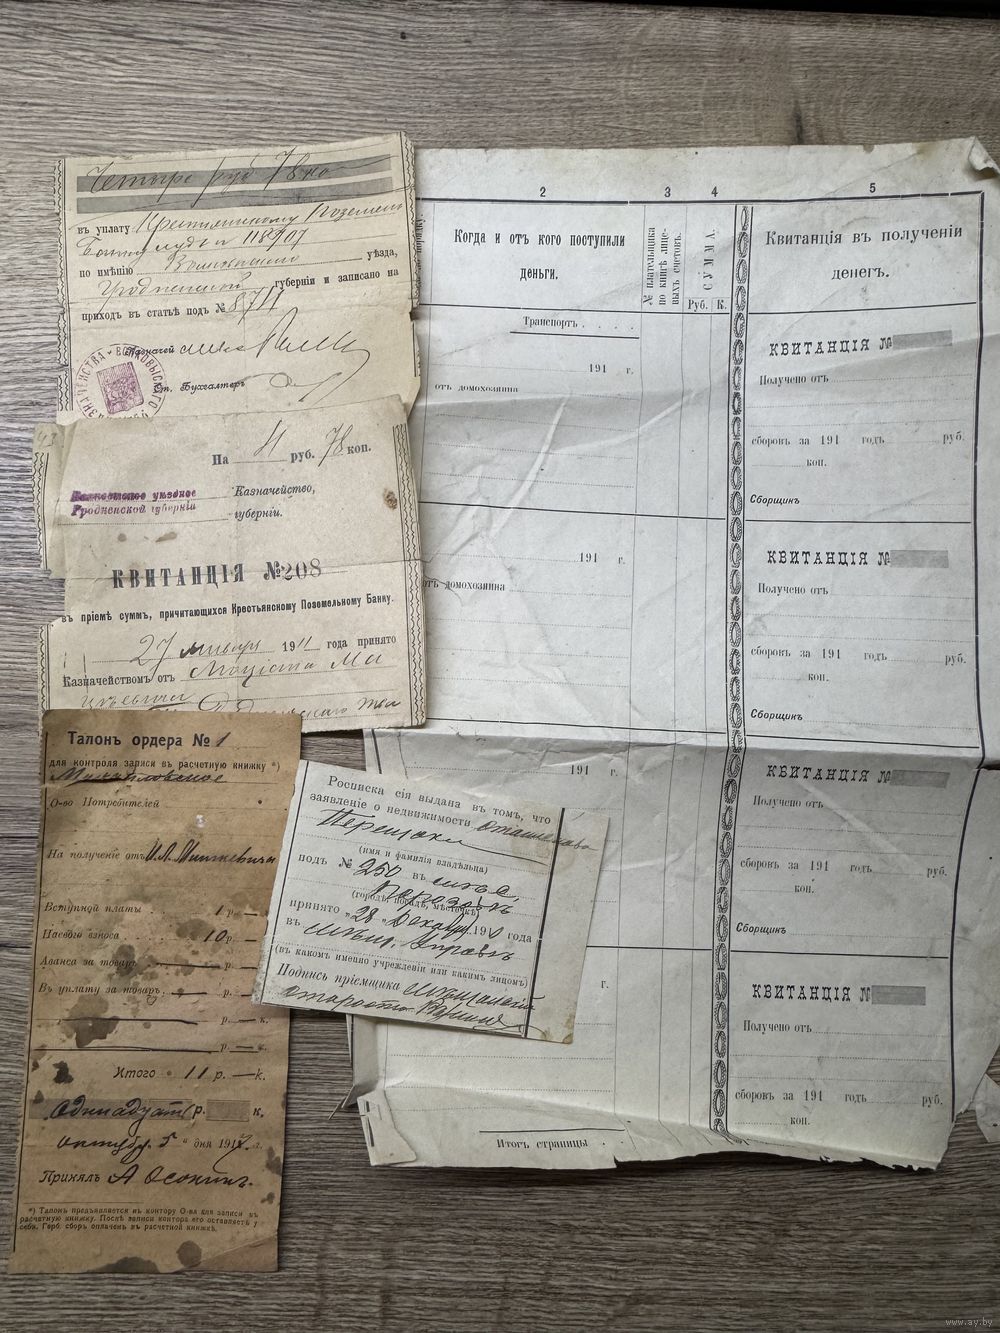 Четыре руб 78 ко
въ уплату Крестьянскому Поземель
Банку 118907
по имѣнію Волковыскаго уѣзда,
Гродненской губерніи и записано на
приходъ въ статьѣ подъ №
Казначей
Ст. Бухгалтеръ
КАЗНАЧЕЙСТВА ВОЛКОВЫСКАГО
43
На 4 руб. 78 коп.
Волковыское уѣздное Казначейство,
Гродненской губерніи губерніи.
КВИТАНЦІЯ №208
въ пріемѣ сумм, причитающихся Крестьянскому Поземельному Банку.
27 января 1911 года принято
Казначействомъ отъ
Талонъ ордера № 1
для контроля записи въ расчетную книжку *)
О-во Потребителей
На полученіе отъ
Вступной платы . . 1 р. — к.
Паевого взноса 10 р. —
Аванса за товаръ р. —
Въ уплату за товаръ р. —
р. — к.
р. — к.
Итого 11 р. — к.
Одинадцат р. к.
октябр. 5 " дня 1917 г.
Принялъ А Осокинъ.
*) Талонъ предъявляется въ контору О-ва для записи въ
расчетную книжку. Послѣ записи контора его оставляетъ у
себя. Герб. сборъ оплаченъ въ расчетной книжкѣ.
Росписка сія выдана въ томъ, что
заявленіе о недвижимости
(имя и фамилія владѣльца)
подъ № 250 въ
Порозовъ
(городъ, посадъ, мѣстечко)
принято „28 „ Декабр 1910 года
въ Мѣщ. Управѣ
(въ какомъ именно учрежденіи или какимъ лицомъ)
Подпись пріемщика Мѣщанскій
староста
2
3
4
5
Когда и отъ кого поступили
деньги.
№ плательщика
по книгѣ лице-
выхъ счетовъ.
СУММА.
Руб. К.
Квитанція въ полученіи
денегъ.
Транспортъ . . . .
191 г.
отъ домохозяина
КВИТАНЦІЯ №
Получено отъ
сборовъ за 191 годъ руб.
коп.
Сборщикъ
191 г.
отъ домохозяина
КВИТАНЦІЯ №
Получено отъ
сборовъ за 191 годъ руб.
коп.
Сборщикъ
191 г.
КВИТАНЦІЯ №
Получено отъ
сборовъ за 191 годъ руб.
коп.
Сборщикъ
г.
КВИТАНЦІЯ №
Получено отъ
сборовъ за 191 годъ руб.
коп.
Итогъ страницы . .
www.ay.by